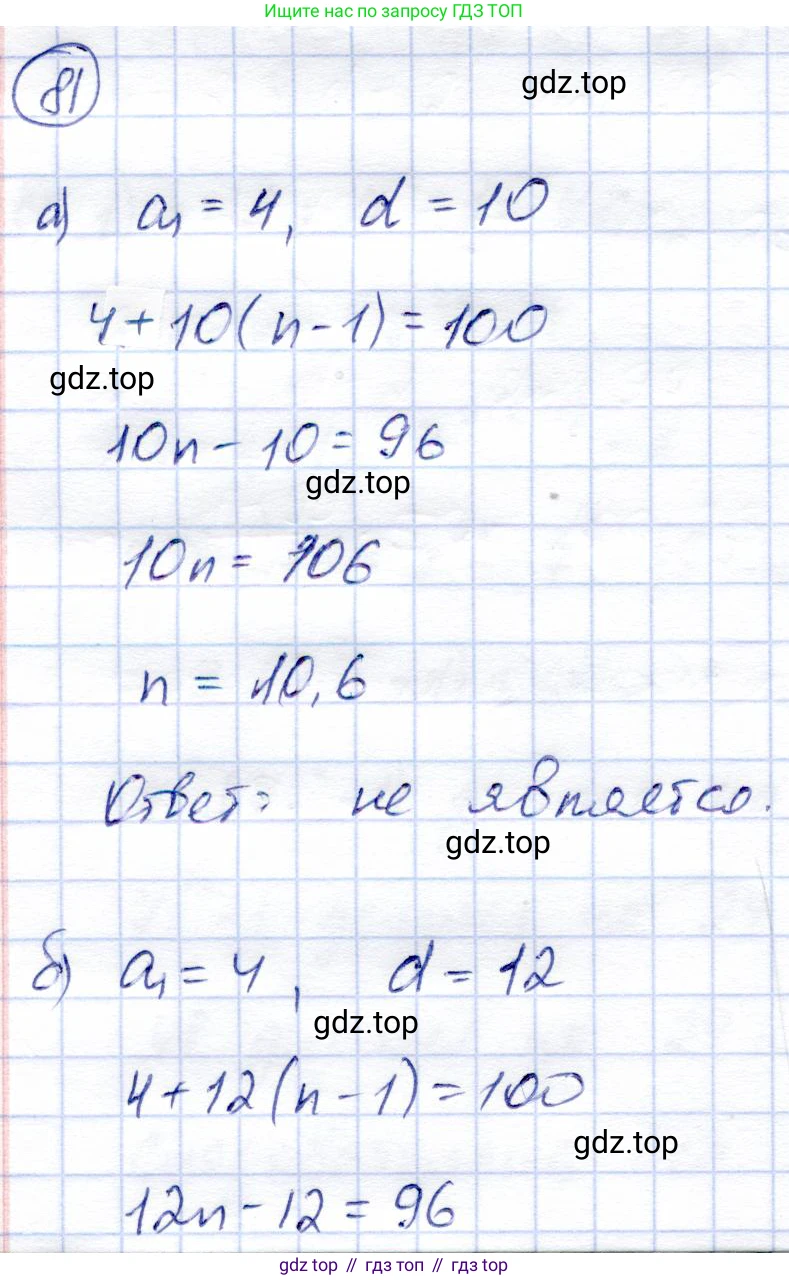 Ищите нас по запросу ГДЗ ТОП
81
gdz.top
а) a₁ = 4, d = 10
4 + 10(n - 1) = 100
gdz.top
10n - 10 = 96
gdz.top
10n = 106
n = 10,6
Ответ: не является.
gdz.top
б) a₁ = 4, d = 12
gdz.top
4 + 12(n - 1) = 100
gdz.top
12n - 12 = 96
gdz top // гдз топ // гдз top